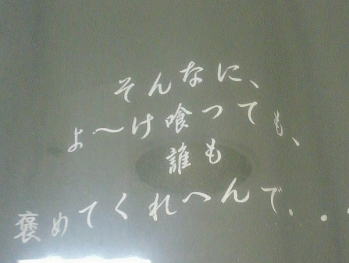 そんなに、
よ〜け喰っても、
誰も
褒めてくれへんで、・・